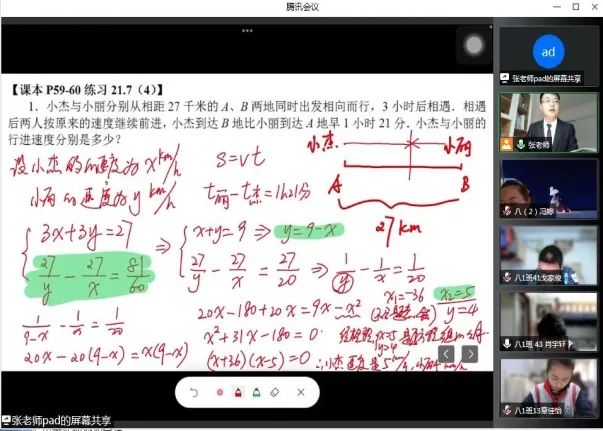 腾讯会议
【课本 P59-60 练习 21.7（4）】
1. 小杰与小丽分别从相距 27 千米的 A、B 两地同时出发相向而行，3 小时后相遇．相遇
后两人按原来的速度继续前进，小杰到达 B 地比小丽到达 A 地早 1 小时 21 分．小杰与小丽的
行进速度分别是多少？
设小杰的速度为 x km/h
小丽的速度为 y km/h
s=vt
t丽-t杰=1h21分
小杰
小丽
A
B
27 km
3x+3y=27
27/y - 27/x = 81/60
⇒
x+y=9 ⇒ y=9-x
27/y - 27/x = 27/20 ⇒ 1/y - 1/x = 1/20
1/9-x - 1/x = 1/20
20x-20(9-x)=x(9-x)
20x-180+20x=9x-x²
x²+31x-180=0
(x+36)(x-5)=0
x₁=-36
x₂=5
y=4
∴小杰速度是5km/h
张老师pad的屏幕共享
ad
张老师pad的屏幕共享
张老师
八（2）冯婷
八1班 43 肖宇轩